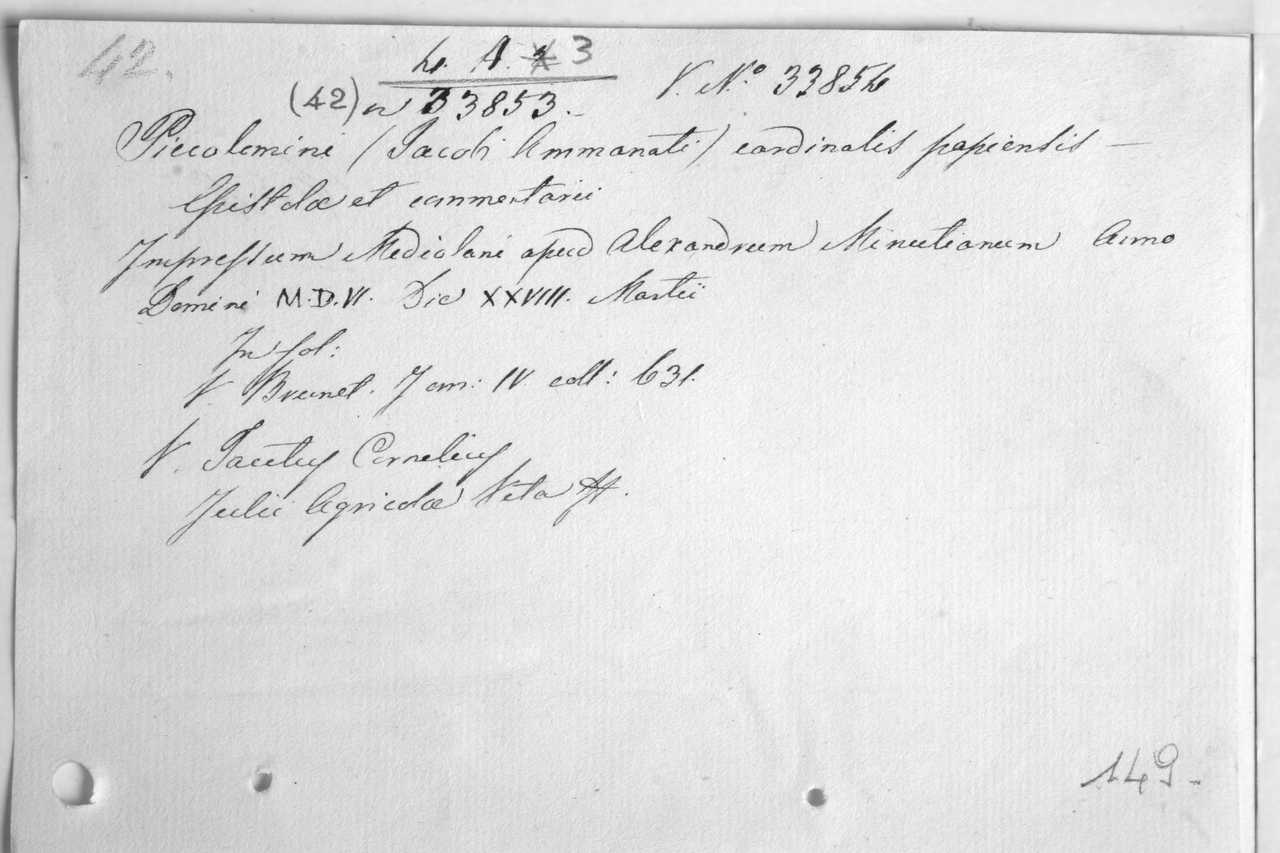 42.
L. A. 3
(42) n 33853.
V. N.° 33854
Piccolomini (Jacobi Ammanati) cardinalis papiensis —
Epistolæ et commentarii
Impressum Mediolani apud Alexandrum Minutianum Anno
Domini M.D.VI. Die XXVIII. Martii
In fol:
V. Brunet. Tom: IV. coll: 631.
V. Tacitus Cornelius
Julii Agricolæ Vita
149.